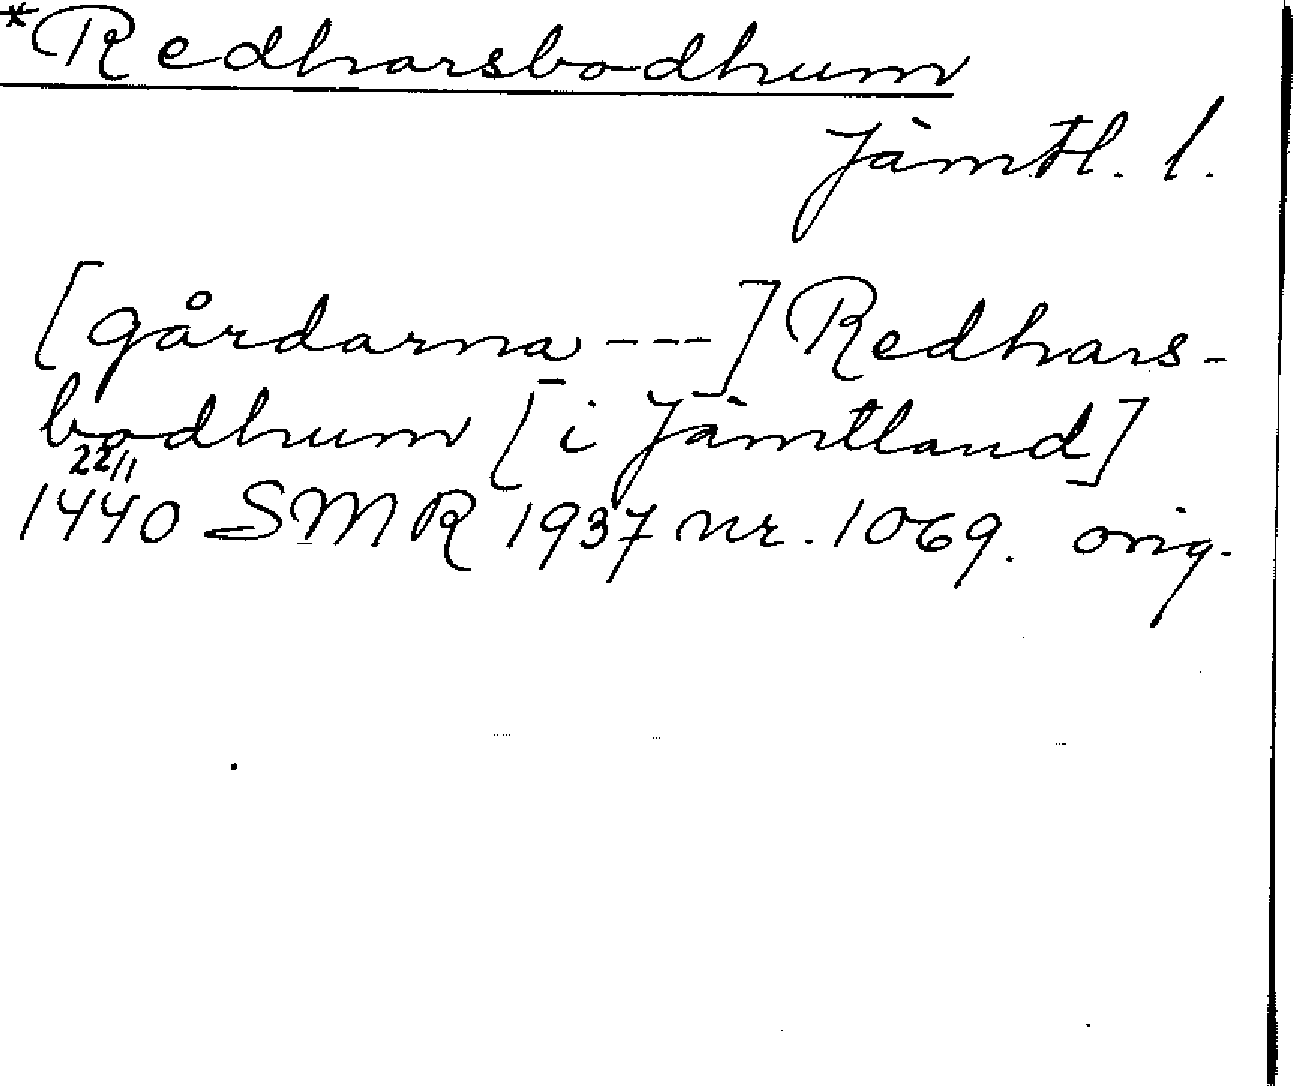 *Redharsbodhum
Jämtl. l.
[gårdarna ---] Redhars-
bodhum [i Jämtland]
22/11
1440 SMR 1937 nr. 1069. orig.